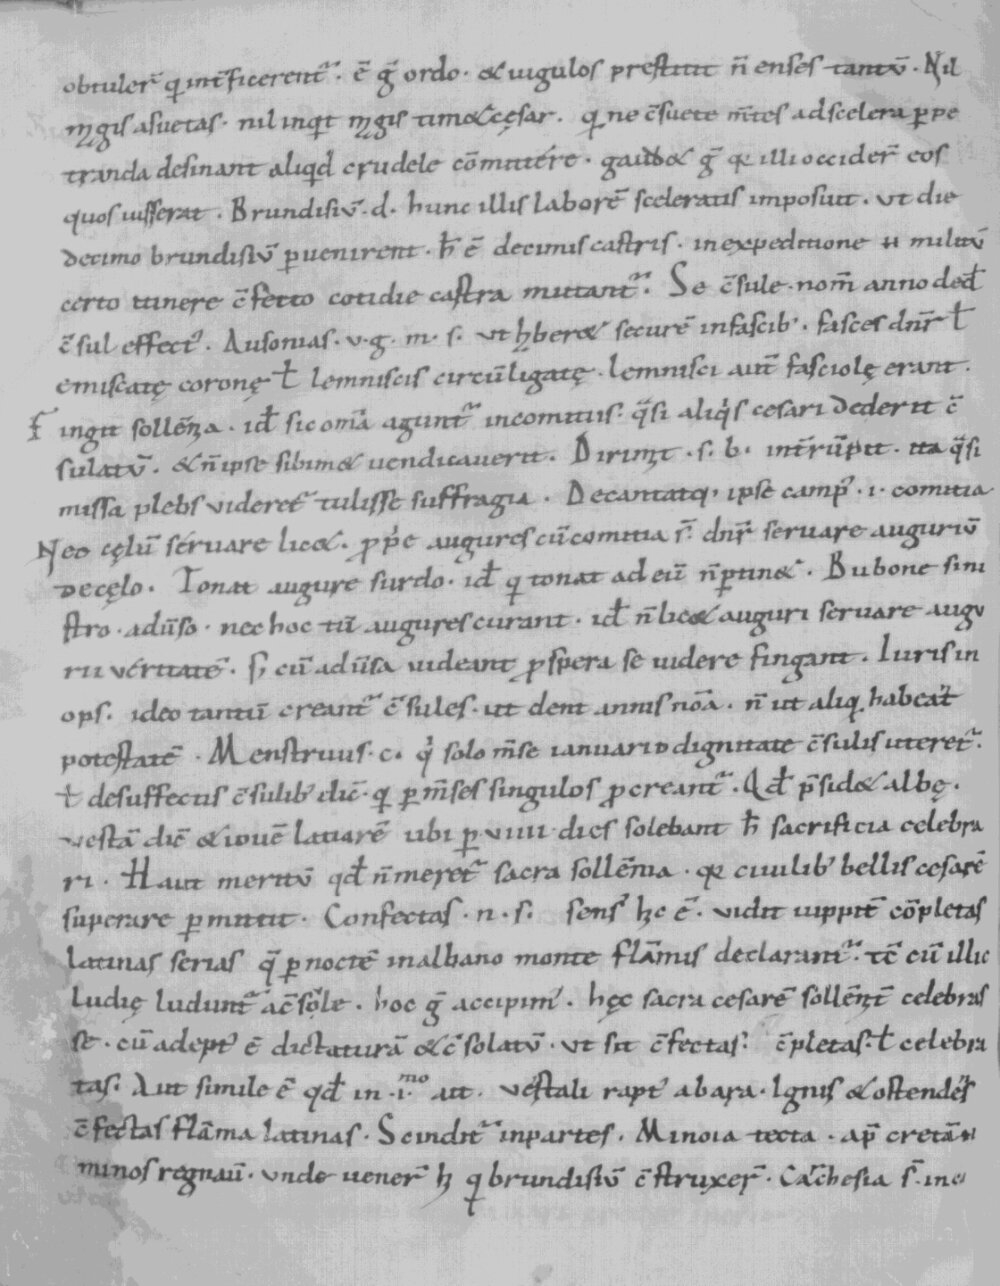 obtuler̄ q int̄ficerent᷑. ē g̃ ordo. & uigulos prestitit n̄ enses tantū. Nil
mgis asuetas. nil inqͥt mgis tim& cęsar. q ne c̄suete m̄tes ad scelera ꝑpe
tranda desinant aliqͥd crudele cōmittére. gaud& g̃ qꝛ illi occider̄ eos
quos iusserat. Brundisiū .d. hunc illis laborē sceleratis imposuit. ut die
decimo brundisiū ꝑuenirent. h̄ ē decimis castris. in expeditione n militū
certo itinere c̄fecto cotidie castra mittant᷑. Se c̄sule. nom̄ anno ded̄
c̄sul effect᾽. Ausonias .v.g. m. s. ut hber& securē in fascib᾽. fasces dnr̄ ł
emiscatę coronę ł lemniscis circūligatę. lemnisci aut̄ fasciolę erant.
Fingit sollēnia. id̄ sic omīa agunt᷑ in comitiis. qͣsi aliqͥs cesari dederit c̄
sulatū. & n̄ ipse sibim& uendicauerit. Dirimt .s. b. int̄rūpit. ita qͣsi
missa plebs videret᷑ tulisse suffragia. Decantatq᾽ ipse camp᾽ .i. comitia.
Nec cęlū séruare lic&. ꝓpͥe augures cū comitia s̄. dnr̄ seruare auguriū
de cęlo. Tonat augure surdo. id̄ q tonat ad eū n̄ ptin&. Bubone sini
stro. adūso. nec hoc tū augures curant. id̄ n̄ lic& auguri seruare augu
rii véritatē. S; cū adūsa uideant ꝓspera se uidere fingant. Iuris in
ops. ideo tantū creant᷑ c̄sules. ut dent annis noīa. n̄ ut aliq habeāt
potestatē. Menstruus .c. qͥ solo m̄se ianuario dignitate c̄sulis uteret᷑.
ł de suffectis c̄sulib᾽ dic̄. q ꝑ m̄ses singulos ꝓcreant᷑. Qd̄ p̄sid& albę.
vestā dic̄ & iouē latiarē ubi ꝑ viiii dies solebant h̄ sacrificia celebra
ri. Haut meritū qd̄ n̄ meret᷑ sacra sollēnia. qꝛ ciuilib᾽ bellis cesarē
superare ꝑmittit. Confectas .n. s. sens᾽ hc ē. vidit iuppit̄ cōpletas
latinas ferias qͣ ꝑ noctē in albano monte flām̄is declarant᷑. tc̄ cū illic
ludię ludunt᷑ ac̄ sole. hoc g̃ accipim᾽. hęc sacra cesarē sollēnt̄ celebras
se. cū adept᾽ ē dictaturā & c̄solatū. ut sit c̄fectas. c̄pletas. ł celebra
tas. Aut simile ē qd̄ in .i.ᵐᵒ ait. vestali rapt᾽ ab ara. Ignis & ostendēs
c̄fectas flāma latinas. Scindit᷑ in partes. Minoia tecta. ap̄ cretā n
minos regnaū. unde uener̄ h q brundisiū c̄struxer̄. Carchesia s̄. in